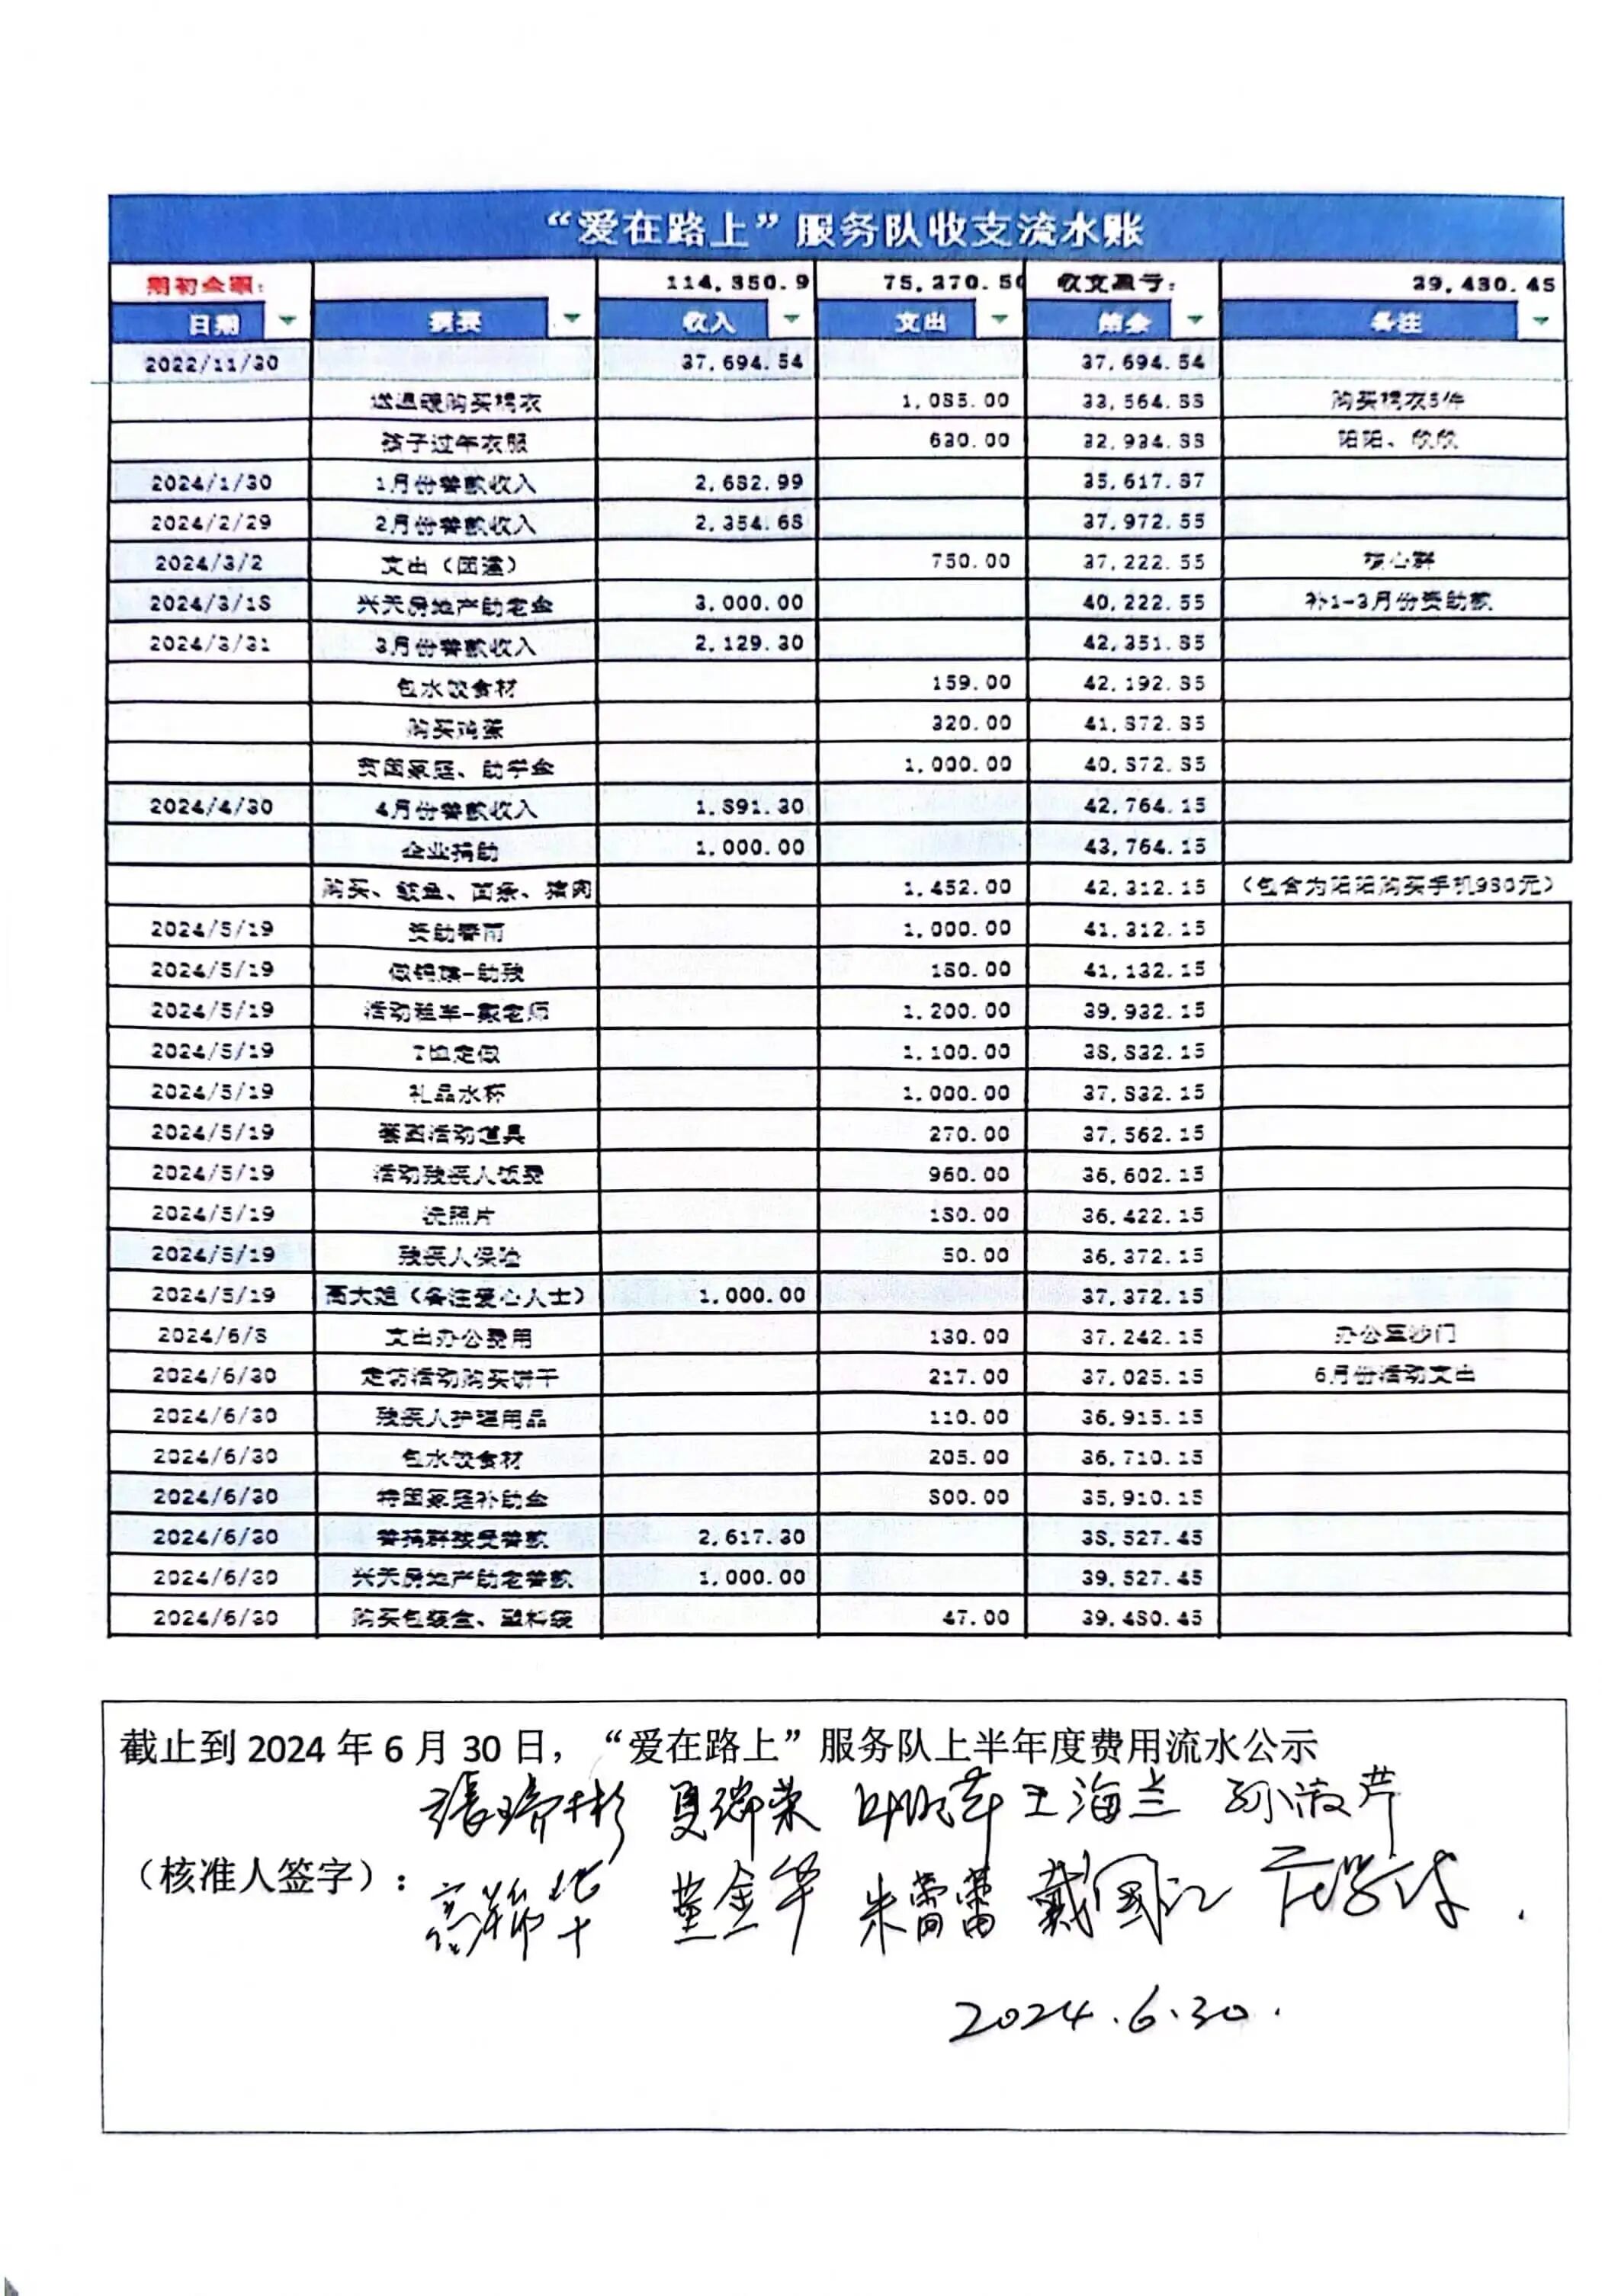 “爱在路上”服务队收支流水账
期初金额： 114,350.9 75,270.50 收支盈亏： 39,480.45
日期 摘要 收入 支出 结余 备注
2022/11/30 37,694.54 37,694.54
送温暖购买棉衣 1,085.00 33,564.88 购买棉衣5件
孩子过年衣服 630.00 32,934.88 阳阳、欣欣
2024/1/30 1月份善款收入 2,682.99 35,617.87
2024/2/29 2月份善款收入 2,354.68 37,972.55
2024/3/2 支出（团建） 750.00 37,222.55 核心群
2024/3/18 兴天房地产助老金 3,000.00 40,222.55 补1-3月份资助款
2024/3/31 3月份善款收入 2,129.30 42,351.85
包水饺食材 159.00 42,192.85
购买鸡蛋 320.00 41,872.85
贫困家庭、助学金 1,000.00 40,872.85
2024/4/30 4月份善款收入 1,891.30 42,764.15
企业捐助 1,000.00 43,764.15
购买、鱿鱼、面条、猪肉 1,452.00 42,312.15 （包含为阳阳购买手机980元）
2024/5/19 资助春雨 1,000.00 41,312.15
2024/5/19 做锦旗-助残 180.00 41,132.15
2024/5/19 活动租车-戴老师 1,200.00 39,932.15
2024/5/19 T恤定做 1,100.00 38,832.15
2024/5/19 礼品水杯 1,000.00 37,832.15
2024/5/19 活动道具 270.00 37,562.15
2024/5/19 活动残疾人饭费 960.00 36,602.15
2024/5/19 洗照片 180.00 36,422.15
2024/5/19 残疾人保险 50.00 36,372.15
2024/5/19 高大姐（备注爱心人士） 1,000.00 37,372.15
2024/6/8 支出办公费用 130.00 37,242.15 办公室沙门
2024/6/30 走访活动购买饼干 217.00 37,025.15 6月份活动支出
2024/6/30 残疾人护理用品 110.00 36,915.15
2024/6/30 包水饺食材 205.00 36,710.15
2024/6/30 特困家庭补助金 800.00 35,910.15
2024/6/30 善捐群接受善款 2,617.30 38,527.45
2024/6/30 兴天房地产助老善款 1,000.00 39,527.45
2024/6/30 购买包装盒、塑料袋 47.00 39,480.45
截止到 2024 年 6 月 30 日，“爱在路上”服务队上半年度费用流水公示
夏瑞荣 王海兰 孙淑芹
（核准人签字）： 董金华 朱蕾蕾 戴国江
2024.6.30.